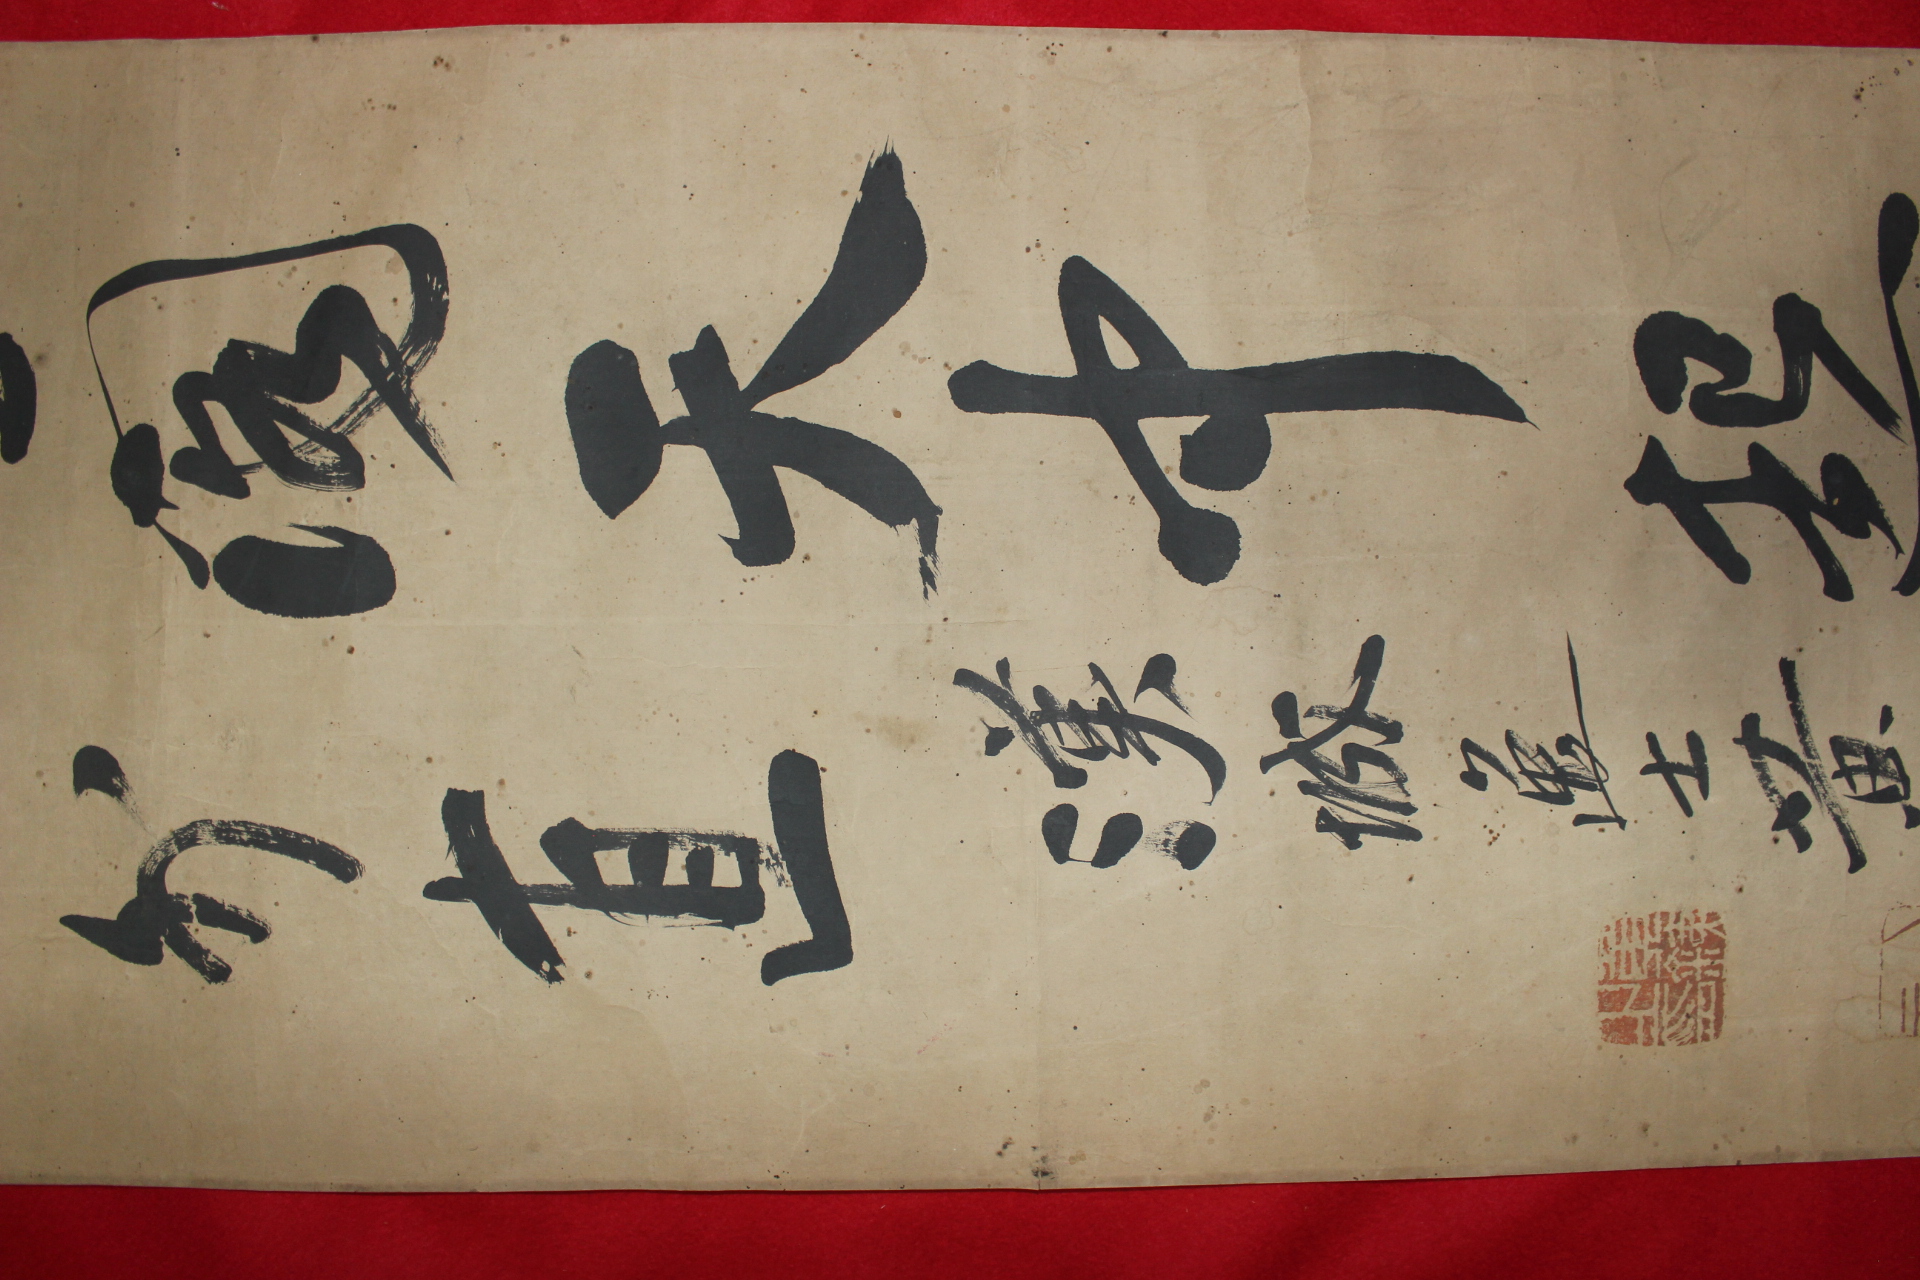 閣天中起
外直
漢城逸士黃